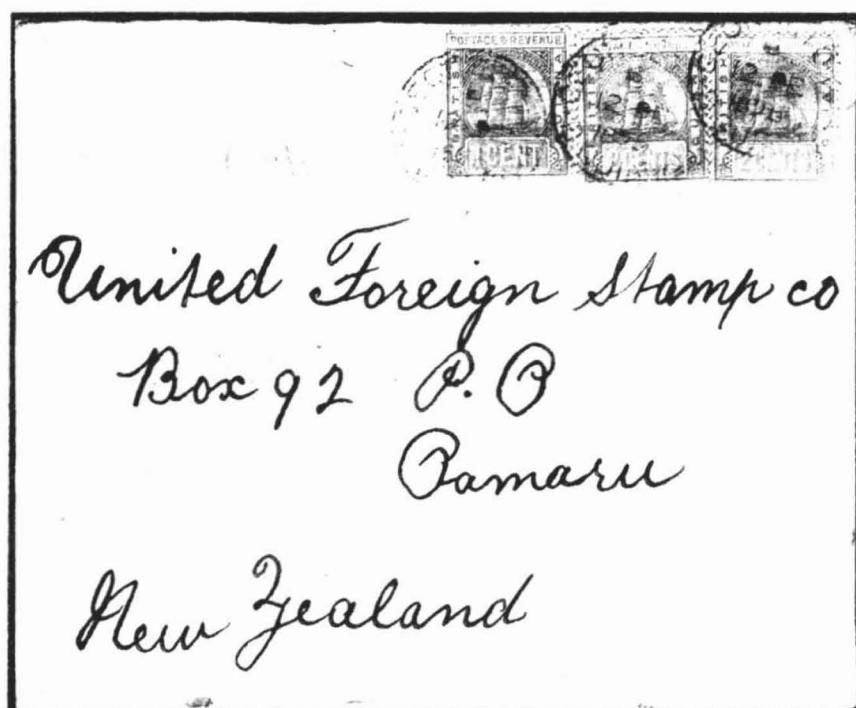 POSTAGE & REVENUE
BRITISH
1 CENT
2 CENTS
2 CENTS
United Foreign Stamp co
Box 92 P. O
Oamaru
New Zealand